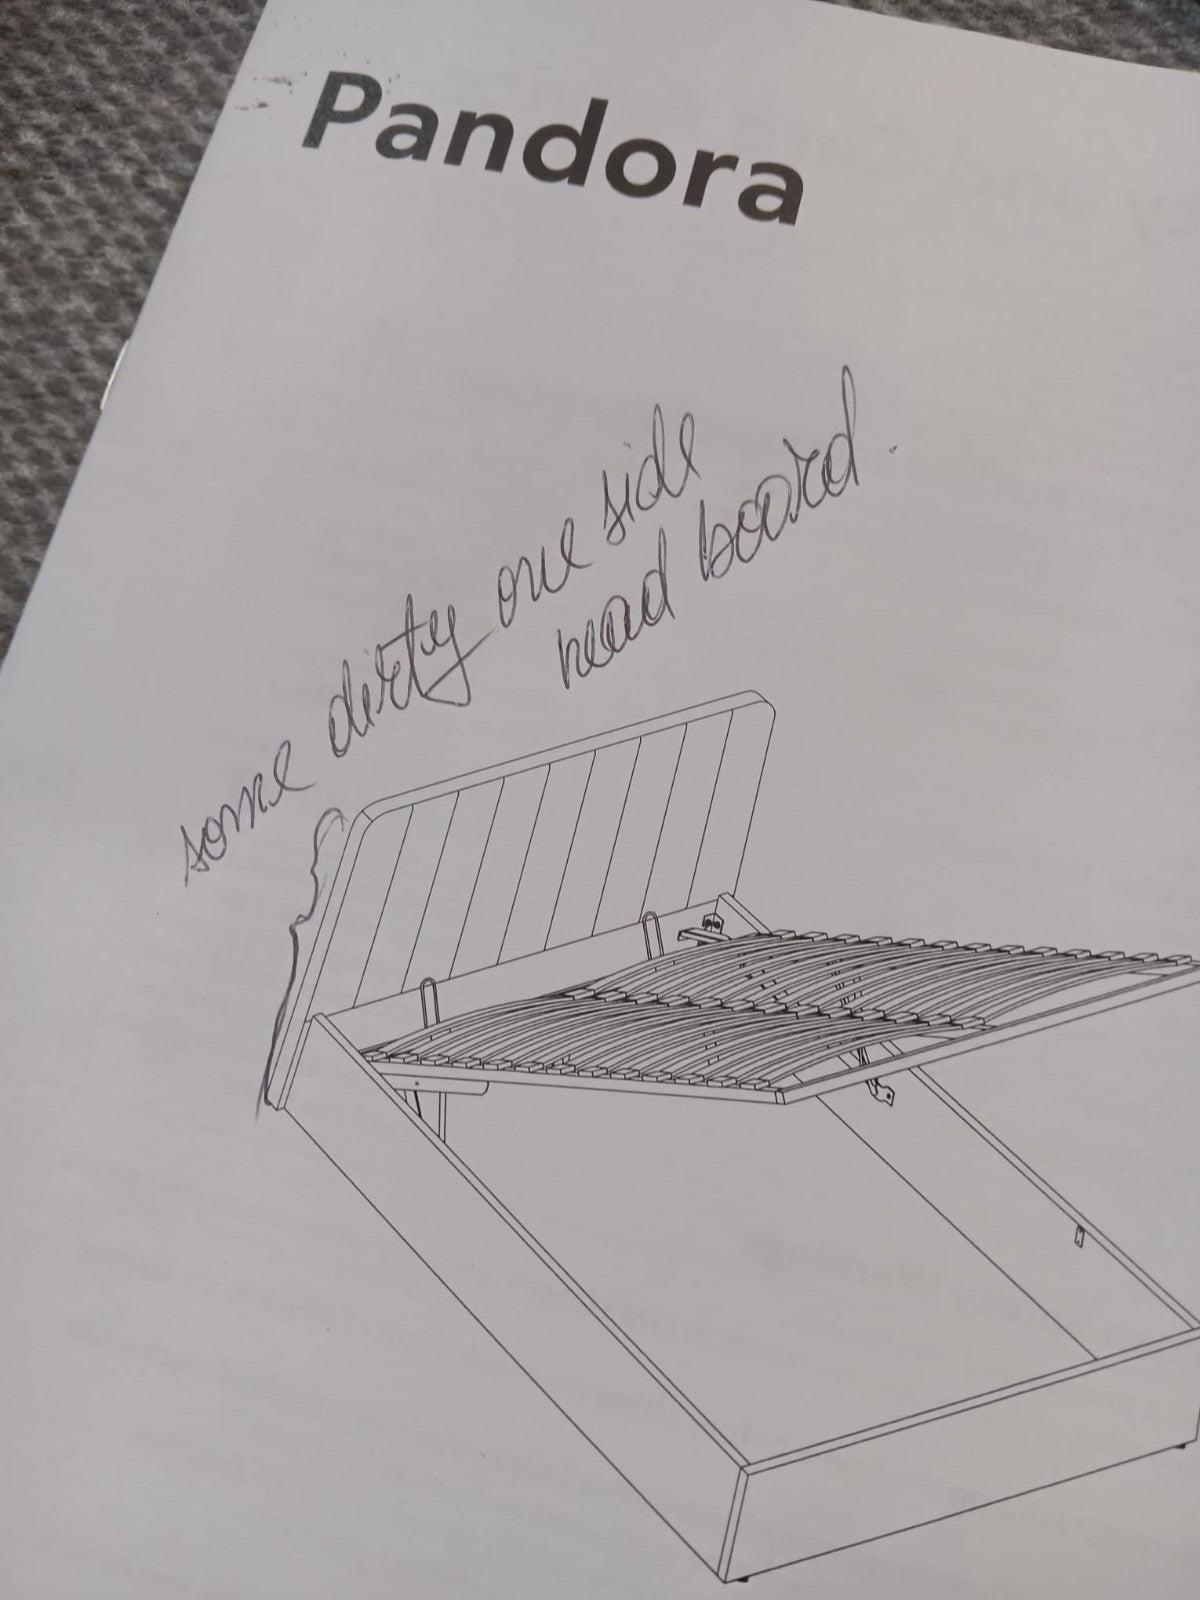 Pandora
some dirty one side
head board.